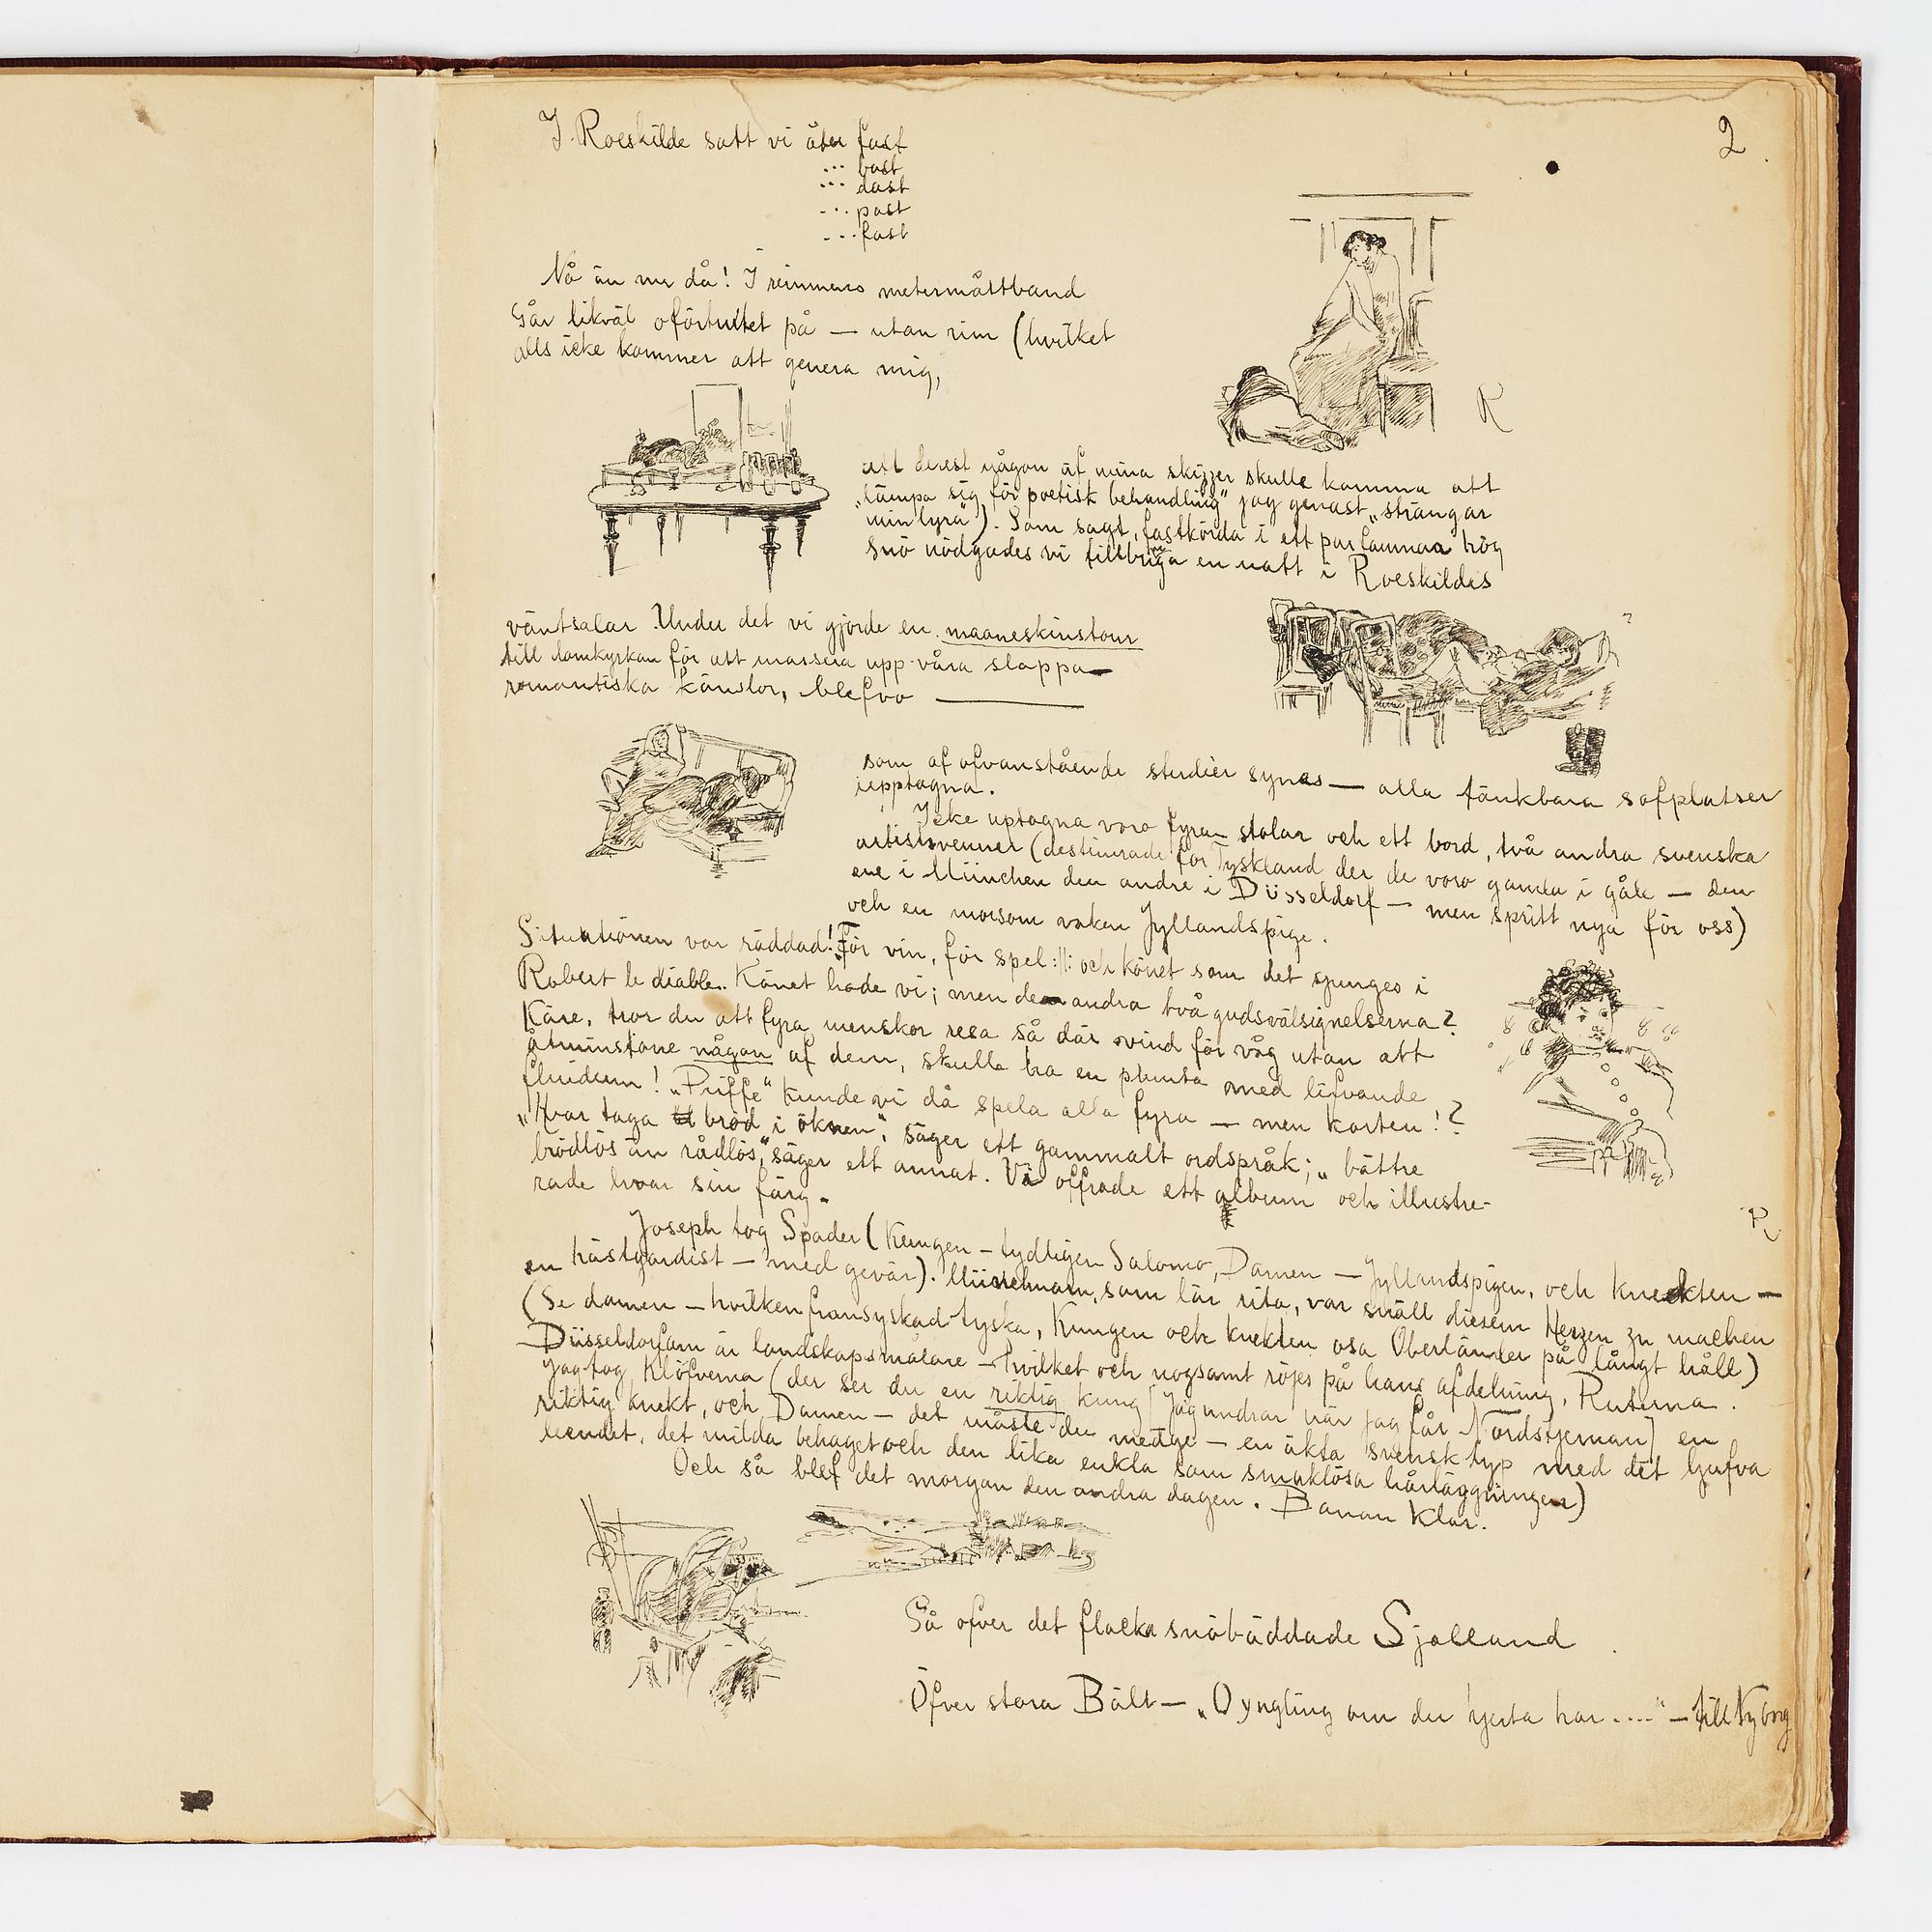 2
I Roeskilde satt vi åter fast
... bast
... dast
... past
... fast
Nå än nu då! I rimmens metermåttband
Går likväl oförtrutet på — utan rim (hvilket
alls icke kommer att genera mig,
R
att derest någon af mina skizzer skulle komma att
„lämpa sig för poetisk behandling" jag genast „strängar
min lyra"). Som sagt, fastkörda i ett par famnar hög
Snö nödgades vi tillbringa en natt i Roeskildes
väntsalar. Under det vi gjorde en maaneskinstour
till domkyrkan för att massera upp våra slappa
romantiska känslor, blefvo —
?
som af ofvanstående studier synas — alla tänkbara sofplatser
upptagna.
Icke uptagna voro fyra stolar och ett bord, två andra svenska
artistvenner (destinerade för Tyskland der de voro ganda i gåle — den
ene i München den andre i Düsseldorf — men spritt nya för oss)
och en morsom vaken Jyllandspige.
Situationen var räddad! För vin, för spel :||: och könet som det sjunges i
Robert le diable. Könet hade vi; men de andra två gudsvälsignelserna?
Käre, tror du att fyra menskor resa så där vind för våg utan att
åtminstone någon af dem, skulle ha en plunta med lifvande
fluidum! „Piffe" kunde vi då spela alla fyra — men korten!?
„Hvar taga bröd i öknen", säger ett gammalt ordspråk; „bättre
brödlös än rådlös", säger ett annat. Vi offrade ett album och illustre-
rade hvar sin färg.
R
Joseph tog Spader (Kungen — tydligen Salomo, Damen — Jyllandspigen, och knekten —
en hästgardist — med gevär). Münchnarn, som lär rita, var snäll diesem Herzen zu machen
(Se damen — hvilken fransyskad tyska, Kungen och knekten osa Oberländer på långt håll)
Düsseldorfarn är landskapsmålare — hvilket och nogsamt röjes på hans afdelning, Ruterna.
Jag tog Klöfverna (der ser du en riktig kung [Jag undrar när jag får Nordstjernan] en
riktig knekt, och Damen — det måste du medge — en äkta svensk typ med det ljufva
leendet, det milda behaget och den lika enkla som smaklösa hårläggningen)
Och så blef det morgon den andra dagen. Banan klar.
Så ofver det flacka snöbäddade Sjælland
Öfver stora Bält — „O yngling om du hjerta har ...." — till Nyborg